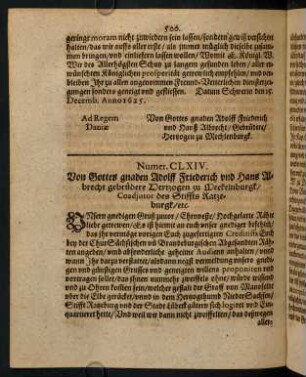 500.
geringe moram nicht zuwiedern sein lassen/sondern gewiß vorsehen
halten/das wir auffs aller erste/ als immer müglich dieselbe zusam-
men bringen/und einliefern lassen wollen/ Womit E. Königl. W.
Wir des Allerhögsten Schutz zu langem gesunden leben/ aller er-
wünschten Königlichen prosperitet getrewlich empfehlen/ und ver-
bleiben Ihr zu allen angenommen Freund-Vetterlichen dienster-
zeigungen sonders geneigt und geflissen. Datum Schwerin den 15.
Decemb. Anno 1625.
Ad Regem
Daniæ
Von Gottes gnaden Adolff Friederich
und Hanß Albrecht/ Gebrüdere/
Hertzogen zu Mechlenburgk.
Numer. CLXIV.
Von Gottes gnaden Adolff Friederich und Hans Al-
brecht gebrüdere Hertzogen zu Meckelnburgk/
Coadjutor des Stiffts Ratze-
burgk/etc.
Unsern gnedigen Gruß zuvor/ Ehrnveste/ Hochgelarte Räthe
liebe getrewen/
das ihr vermöge voriges Euch zugefertigten Creditifs Euch
bey der ChurSächsischen und Brandeburgischen Abgesandten Räthen
angeben/ und absonderliche geheime Audientz anhalten/ und
wann Ihr darzu verstattet/ alsdann negst vermeldung unsers gnedi-
gen und günstigen Grusses und geneigten willens proponiren und
vortragen sollet/ das ihnen nunmehr zweiffels ohne/ würde wissend
und zu Ohren kommen sein/ welcher gestalt der Graff von Mansfeldt
über die Elbe gerücket/ unnd in dem Hertzogthumb Nieder Sachsen/
Stifft Ratzeburg und der Stadt Lübeck gütern sich logiret und Ein-
quartieret hette/ Und weil wir dann nicht zweiffelten/ das dejwegen
aller-